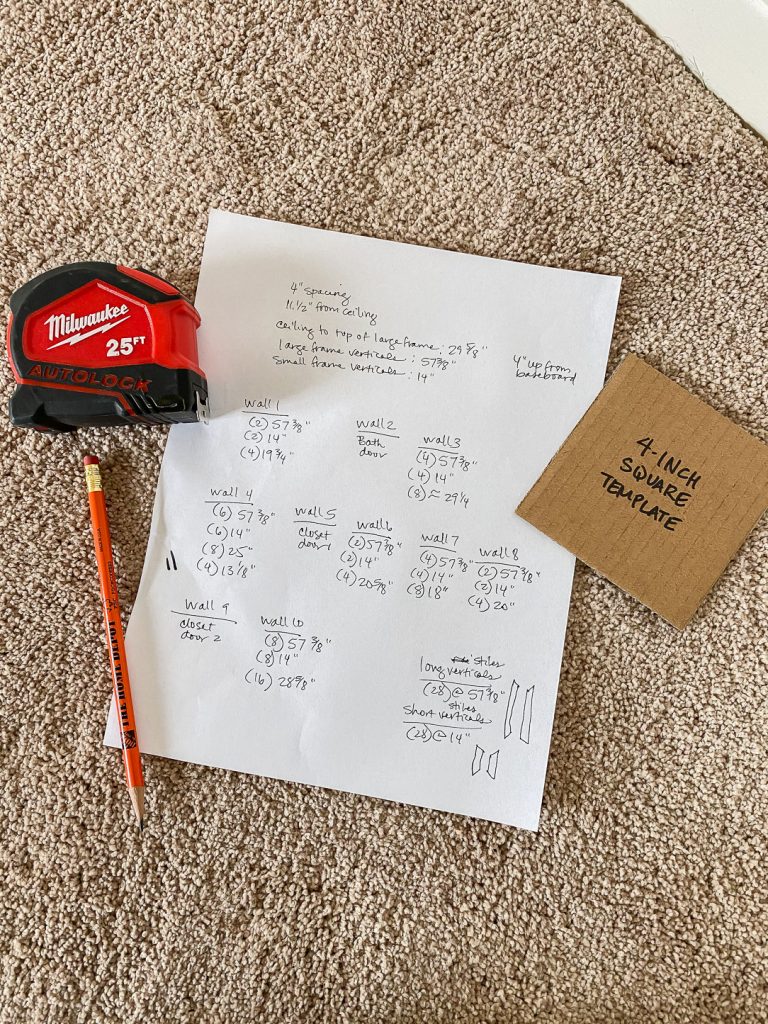 4" spacing
11.1/2" from ceiling
ceiling to top of large frame: 29 5/8"
large frame verticals: 57 3/8"
small frame verticals: 14"
4" up from
baseboard
Milwaukee
25FT
AUTOLOCK
4-INCH
SQUARE
TEMPLATE
wall 1
(2) 57 3/8"
(2) 14"
(4) 19 3/4"
wall 2
Bath
door
wall 3
(4) 57 3/8"
(4) 14"
(8) ≈ 29 1/4
wall 4
(6) 57 3/8"
(6) 14"
(8) 25"
(4) 13 1/8"
wall 5
closet
door 1
wall 6
(2) 57 3/8"
(2) 14"
(4) 20 5/8"
wall 7
(4) 57 3/8"
(4) 14"
(8) 18"
wall 8
(2) 57 3/8"
(2) 14"
(4) 20"
wall 9
closet
door 2
wall 10
(8) 57 3/8"
(8) 14"
(16) 28 5/8"
stiles
long verticals
(28) @ 57 3/8"
stiles
short verticals
(28) @ 14"
THE HOME DEPOT